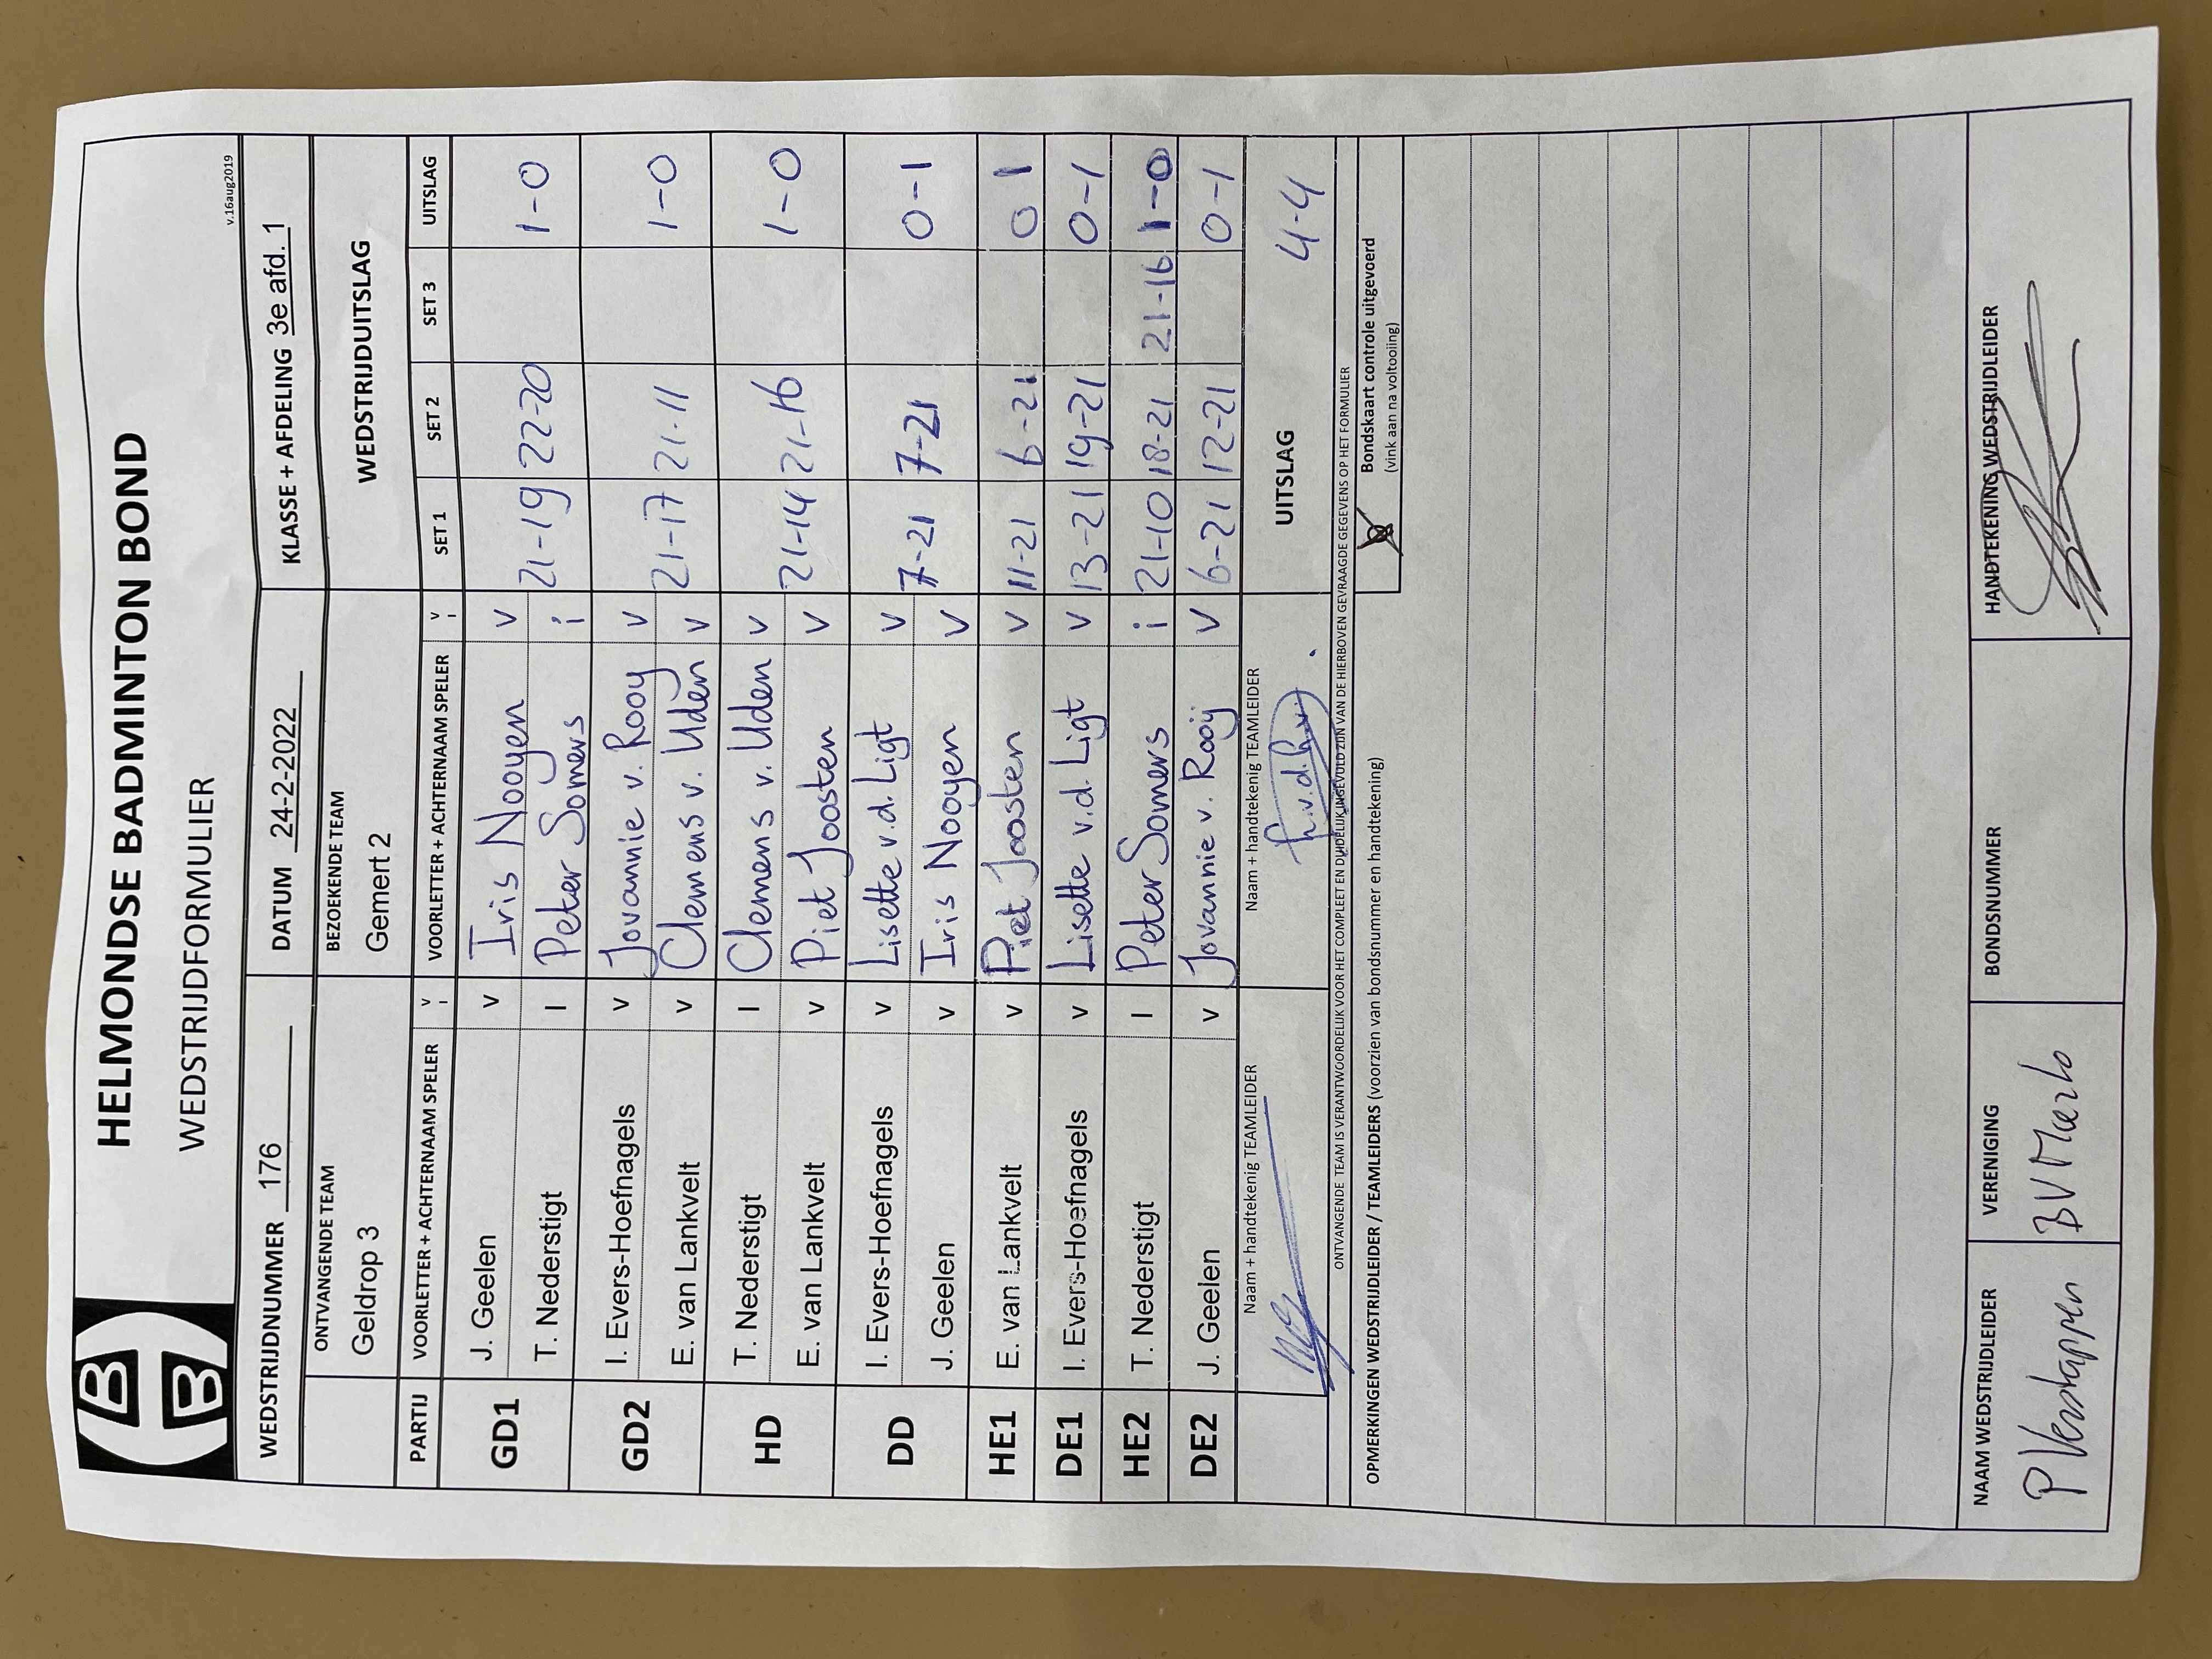 HELMONDSE BADMINTON BOND
WEDSTRIJDFORMULIER
v.16aug2019
WEDSTRIJDNUMMER 176 DATUM 24-2-2022 KLASSE + AFDELING 3e afd. 1
ONTVANGENDE TEAM BEZOEKENDE TEAM WEDSTRIJDUITSLAG
Geldrop 3 Gemert 2
PARTIJ VOORLETTER + ACHTERNAAM SPELER V I VOORLETTER + ACHTERNAAM SPELER V I SET 1 SET 2 SET 3 UITSLAG
GD1 J. Geelen v Iris Nooyen v
T. Nederstigt I Peter Somers i 21-19 22-20 1-0
GD2 I. Evers-Hoefnagels v Jovannie v. Rooy v
E. van Lankvelt v Clemens v. Uden v 21-17 21-11 1-0
HD T. Nederstigt I Clemens v. Uden v
E. van Lankvelt v Piet Joosten v 21-14 21-16 1-0
DD I. Evers-Hoefnagels v Lisette v.d. Ligt v
J. Geelen v Iris Nooyen v 7-21 7-21 0-1
HE1 E. van Lankvelt v Piet Joosten v 11-21 6-21 0 1
DE1 I. Evers-Hoefnagels v Lisette v.d. Ligt v 13-21 19-21 0-1
HE2 T. Nederstigt I Peter Somers i 21-10 18-21 21-16 1-0
DE2 J. Geelen v Jovannie v. Rooij v 6-21 12-21 0-1
Naam + handtekenig TEAMLEIDER Naam + handtekenig TEAMLEIDER UITSLAG 4-4
ONTVANGENDE TEAM IS VERANTWOORDELIJK VOOR HET COMPLEET EN DUIDELIJK INGEVULD ZIJN VAN DE HIERBOVEN GEVRAAGDE GEGEVENS OP HET FORMULIER
OPMERKINGEN WEDSTRIJDLEIDER / TEAMLEIDERS (voorzien van bondsnummer en handtekening)
Bondskaart controle uitgevoerd
(vink aan na voltooiing)
NAAM WEDSTRIJDLEIDER VERENIGING BONDSNUMMER HANDTEKENING WEDSTRIJDLEIDER
P Verstappen BV Mierlo